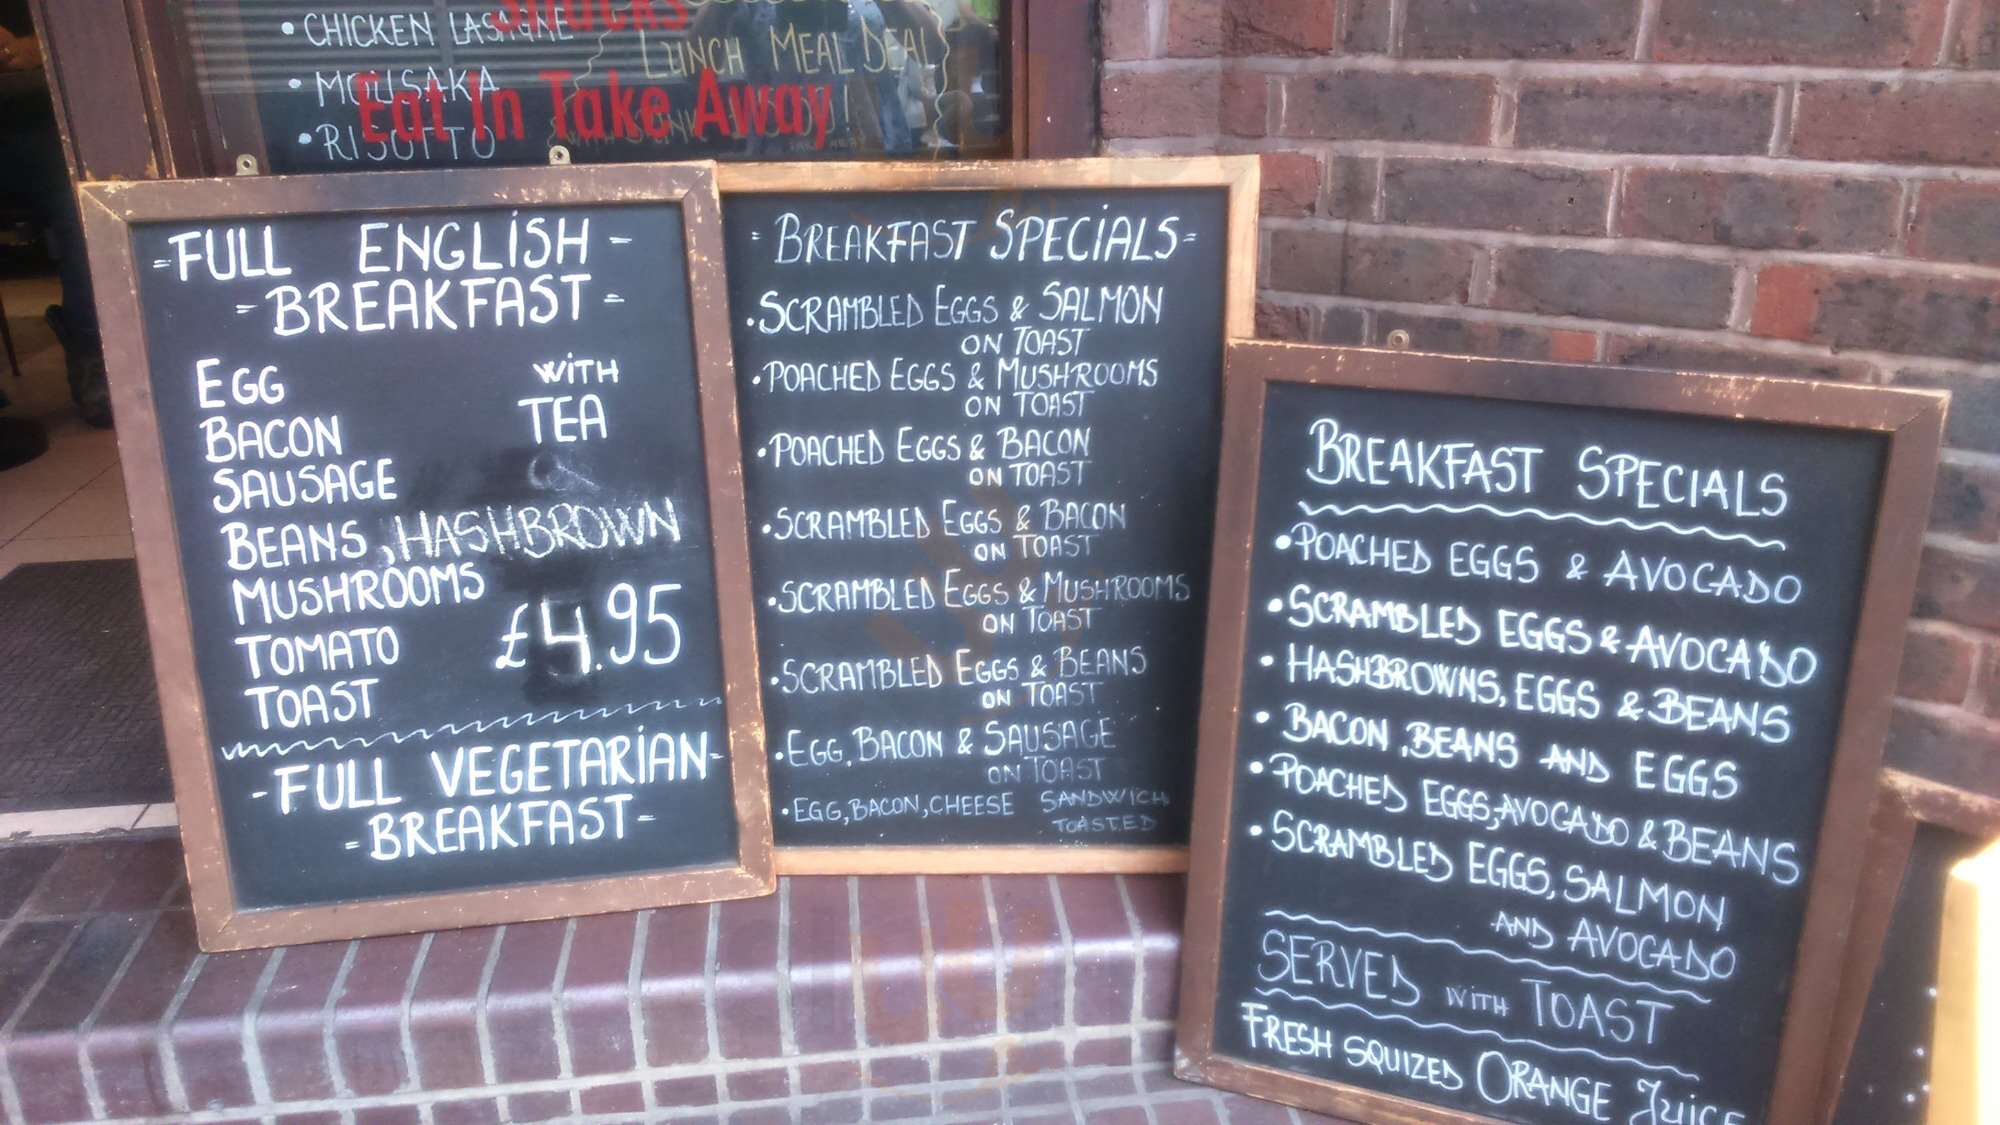 Snacks
• CHICKEN LASAGNE
LUNCH MEAL DEAL
• MOUSAKA
Eat In Take Away
• RISOTTO
=FULL ENGLISH=
=BREAKFAST=
EGG
BACON
SAUSAGE
BEANS, HASHBROWN
MUSHROOMS
TOMATO
TOAST
WITH
TEA
£4.95
-FULL VEGETARIAN-
=BREAKFAST=
=BREAKFAST SPECIALS=
•SCRAMBLED EGGS & SALMON
ON TOAST
•POACHED EGGS & MUSHROOMS
ON TOAST
•POACHED EGGS & BACON
ON TOAST
•SCRAMBLED EGGS & BACON
ON TOAST
•SCRAMBLED EGGS & MUSHROOMS
ON TOAST
•SCRAMBLED EGGS & BEANS
ON TOAST
•EGG, BACON & SAUSAGE
ON TOAST
•EGG, BACON, CHEESE SANDWICH
TOASTED
BREAKFAST SPECIALS
•POACHED EGGS & AVOCADO
•SCRAMBLED EGGS & AVOCADO
•HASHBROWNS, EGGS & BEANS
•BACON, BEANS AND EGGS
•POACHED EGGS, AVOCADO & BEANS
•SCRAMBLED EGGS, SALMON
AND AVOCADO
SERVED WITH TOAST
FRESH SQUIZED ORANGE JUICE